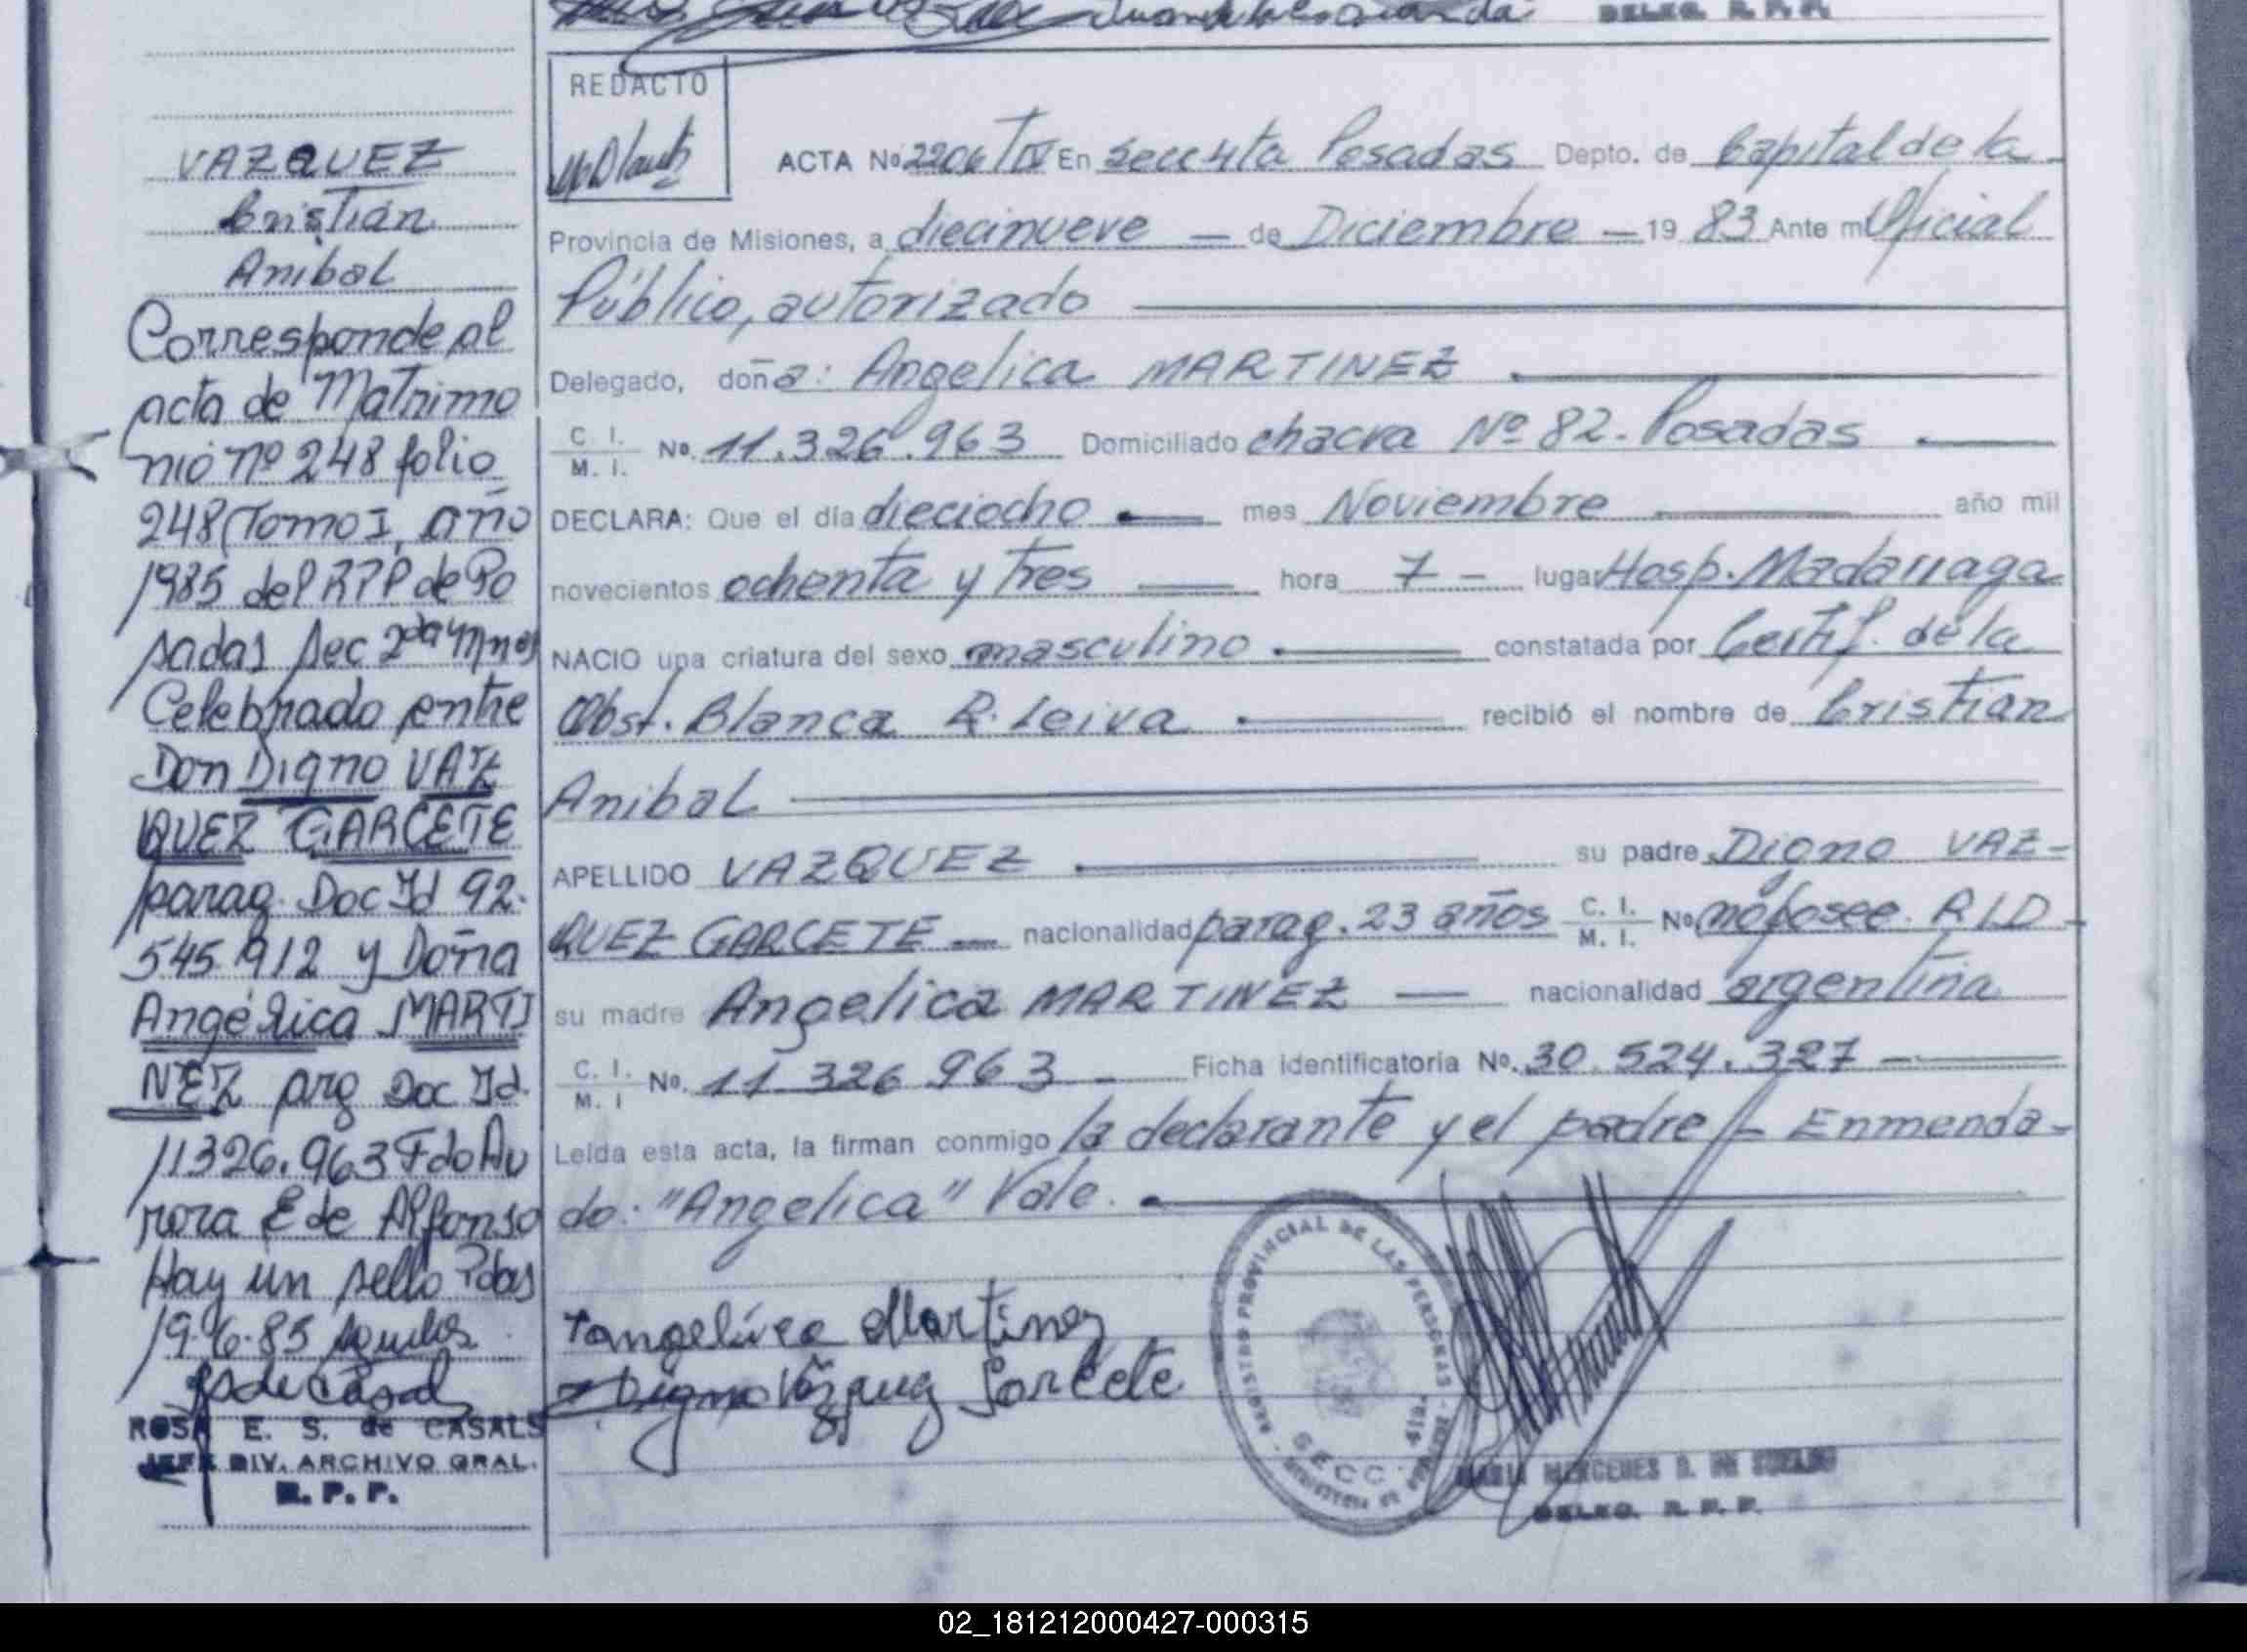 DELEG. R. P. P.
REDACTO
VAZQUEZ
Cristian
Anibal
Corresponde al
acta de Matrimo
nio nº 248 folio
248 Tomo I, año
1985 del RPP de Po
sadas Sec 2da Mnes
Celebrado entre
Don Digno VAZ
QUEZ GARCETE
parag. Doc Id 92.
545.912 y Doña
Angélica MARTI
NEZ arg Doc Id.
11326.963 Fdo Au
rora E de Alfonso
Hay un sello Pdas
19.6.85
ROSA E. S. de CASALS
JEFE DIV. ARCHIVO GRAL.
R. P. P.
ACTA Nº 2206 T IV En Secc 4ta Posadas Depto. de Capital de la
Provincia de Misiones, a diecinueve — de Diciembre — 19 83 Ante mi Oficial
Público, autorizado
Delegado, doña: Angelica MARTINEZ
C. I.
M. I. No. 11.326.963 Domiciliado chacra Nº 82. Posadas
DECLARA: Que el día dieciocho — mes Noviembre año mil
novecientos ochenta y tres hora 7 – lugar Hosp. Madariaga
NACIO una criatura del sexo masculino constatada por Certif. de la
Obst. Blanca R. Leiva recibió el nombre de Cristian
Anibal
APELLIDO VAZQUEZ su padre Digno VAZ-
QUEZ GARCETE — nacionalidad parag. 23 años C. I. M. I. No no posee. RLD
su madre Angelica MARTINEZ — nacionalidad argentina
C. I.
M. I No. 11 326 963 – Ficha identificatoria No. 30.524.327 –
Leída esta acta, la firman conmigo la declarante y el padre/– Enmenda-
do: "Angelica" Vale.
Angelica Martinez
Digno Vazquez Garcete
REGISTRO PROVINCIAL DE LAS PERSONAS
SECC. 4ta.
MARIA MERCEDES
DELEG. R. P. P.
02_181212000427-000315